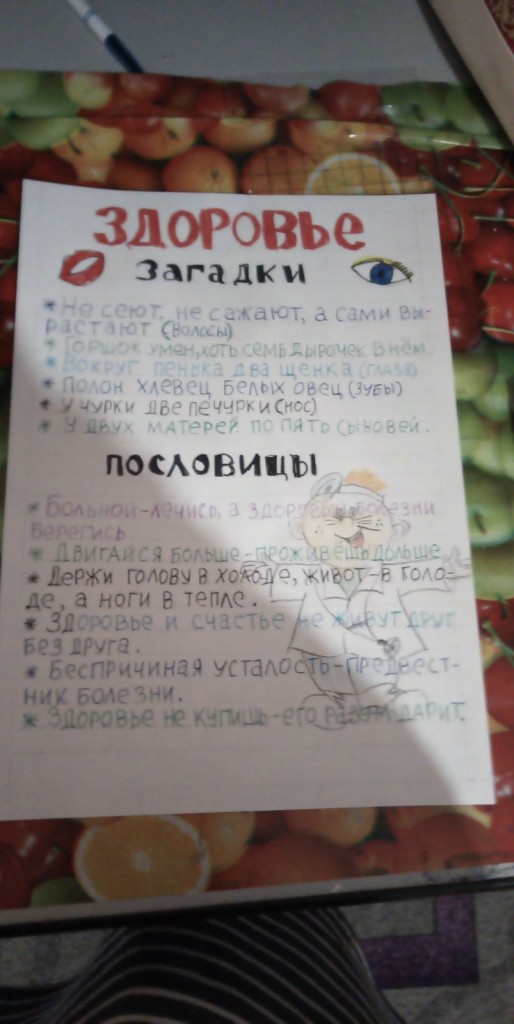 ЗДОРОВЬЕ
Загадки
* Не сеют, не сажают, а сами вы-
растают (волосы)
* Горшок умен, хоть семь дырочек в нём.
* Вокруг пенька два щенка (глаза)
* Полон хлевец белых овец (зубы)
* У чурки две печурки (нос)
* У двух матерей по пять сыновей.
ПОСЛОВИЦЫ
* Больной-лечись, а здоровый болезни
берегись.
* Двигайся больше-проживёшь дольше.
* Держи голову в холоде, живот-в голо-
де, а ноги в тепле.
* Здоровье и счастье не живут друг
без друга.
* Беспричиная усталость-предвест-
ник болезни.
* Здоровье не купишь-его разум дарит.